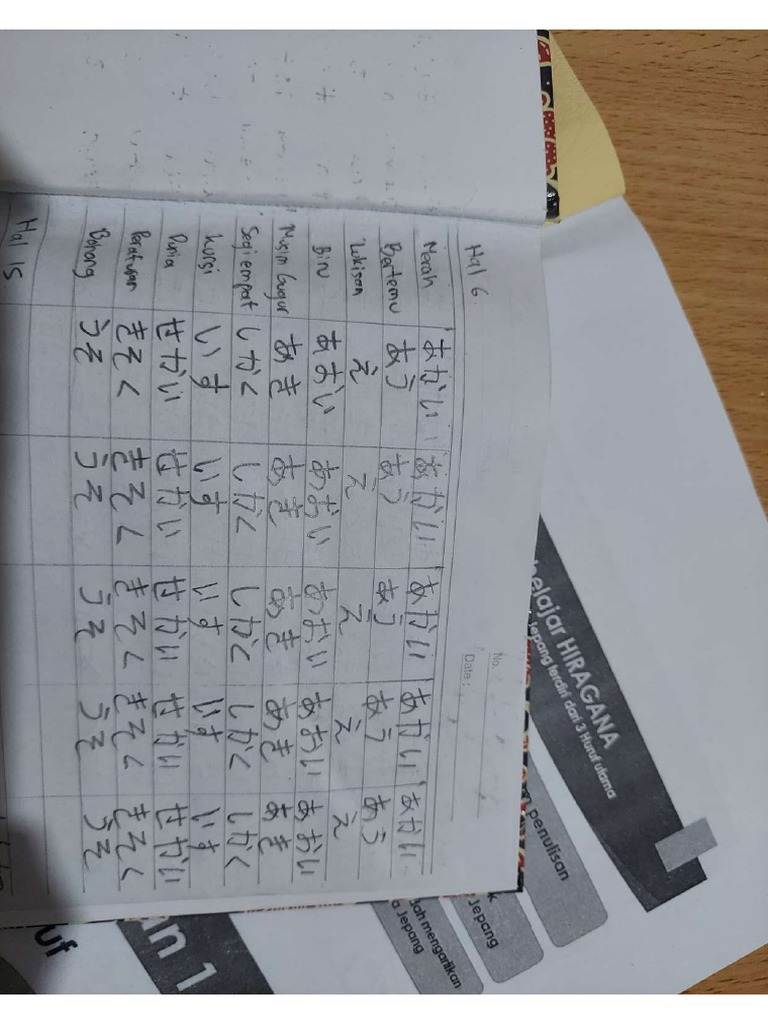 No.
Date :
Hal 6.
Merah あかい あかい あかい あかい あかい
Bertemu あう あう あう あう あう
Lukisan え え え え え
Biru あおい あおい あおい あおい あおい
Musim Gugur あき あき あき あき あき
Segi empat しかく しかく しかく しかく しかく
Kursi いす いす いす いす いす
Dunia せかい せかい せかい せかい せかい
Peraturan きそく きそく きそく きそく きそく
Bohong うそ うそ うそ うそ うそ
Hal 15
elajar HIRAGANA
Jepang terdiri dari 3 Huruf utama
penulisan
Jepang
mengartikan
a Jepang
an 1
uf